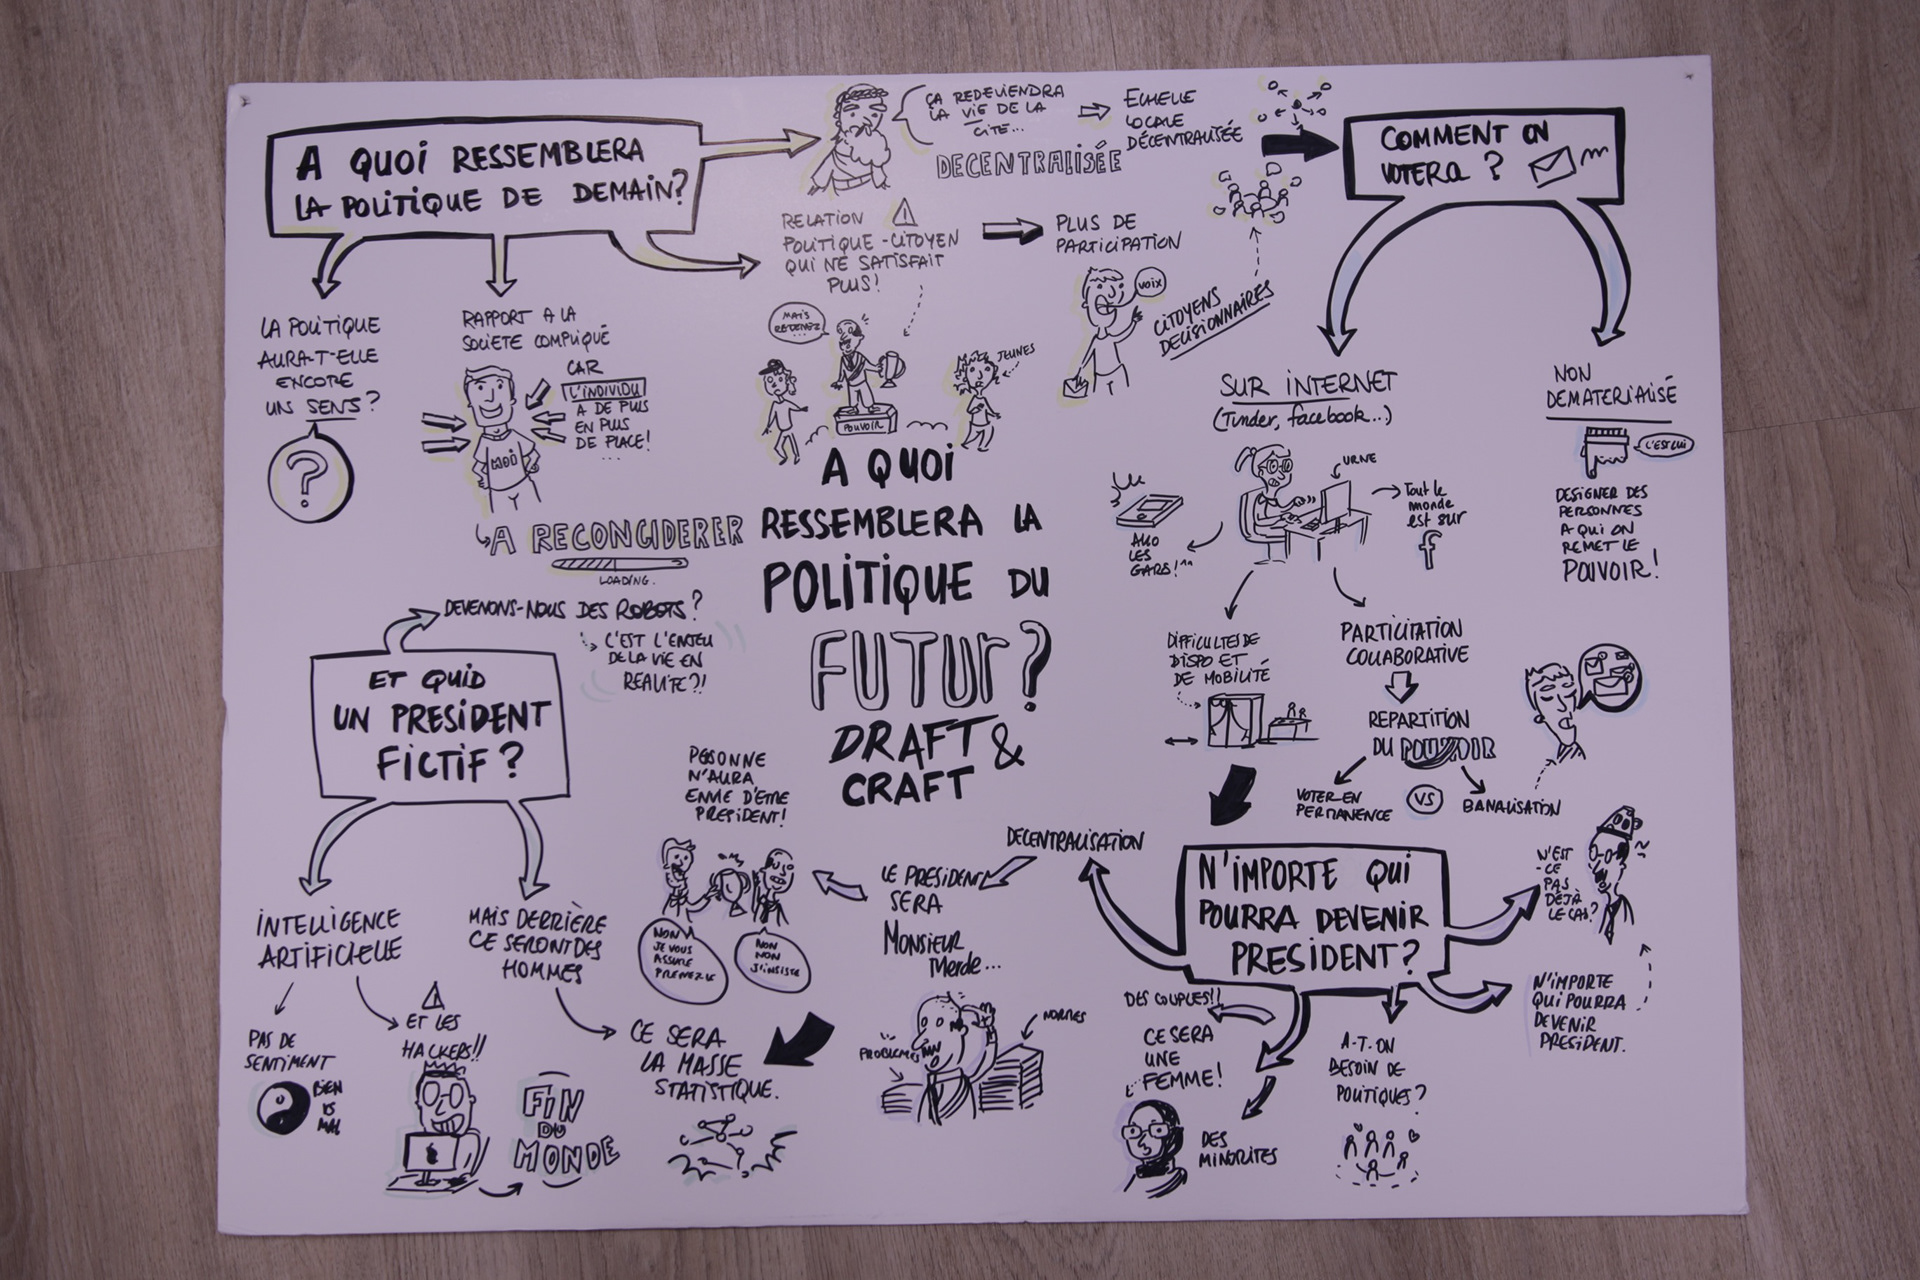 A QUOI RESSEMBLERA
LA POLITIQUE DE DEMAIN?
ÇA REDEVIENDRA
LA VIE DE LA
CITE...
DECENTRALISÉE
ECHELLE
LOCALE
DÉCENTRALISÉE
COMMENT ON
VOTERA ?
RELATION
POLITIQUE-CITOYEN
QUI NE SATISFAIT
PLUS!
PLUS DE
PARTICIPATION
VOIX
CITOYENS
DECISIONNAIRES
MAIS
REVENEZ
...
JEUNES
POUVOIR
LA POLITIQUE
AURA-T-ELLE
ENCORE
UN SENS?
?
RAPPORT A LA
SOCIETE COMPLIQUÉ
CAR
L'INDIVIDU
A DE PLUS
EN PLUS
DE PLACE!
...
MOI
A RECONCIDERER
LOADING.
A QUOI
RESSEMBLERA LA
POLITIQUE DU
FUTUR?
DRAFT &
CRAFT
SUR INTERNET
(Tinder, facebook...)
URNE
Tout le
monde
est sur
f
ALLO
LES
GARS!^^
DIFFICULTES DE
DISPO ET
DE MOBILITÉ
PARTICITATION
COLLABORATIVE
REPARTITION
DU POUVOIR
VOTER EN
PERMANENCE
VS
BANALISATION
NON
DEMATERIALISÉ
C'EST LUI
DESIGNER DES
PERSONNES
A QUI ON
REMET LE
POUVOIR!
DEVENONS-NOUS DES ROBOTS?
C'EST L'ENJEU
DE LA VIE EN
REALITE?!
ET QUID
UN PRESIDENT
FICTIF?
INTELLIGENCE
ARTIFICIELLE
PAS DE
SENTIMENT
BIEN
VS
MAL
ET LES
HACKERS!!
FIN
DU
MONDE
MAIS DERRIÈRE
CE SERONT DES
HOMMES
CE SERA
LA MASSE
STATISTIQUE.
PERSONNE
N'AURA
ENVIE D'ETRE
PRESIDENT!
NON
JE VOUS
ASSURE
PRENEZ LE
NON
NON
J'INSISTE
DECENTRALISATION
LE PRESIDENT
SERA
Monsieur
Merde...
PROBLEMES
NORMES
N'IMPORTE QUI
POURRA DEVENIR
PRESIDENT?
N'EST
-CE
PAS
DÉJÀ
LE CAS?
N'IMPORTE
QUI POURRA
DEVENIR
PRESIDENT.
DES COUPLES!!
CE SERA
UNE
FEMME!
DES
MINORITES
A-T-ON
BESOIN DE
POLITIQUES?